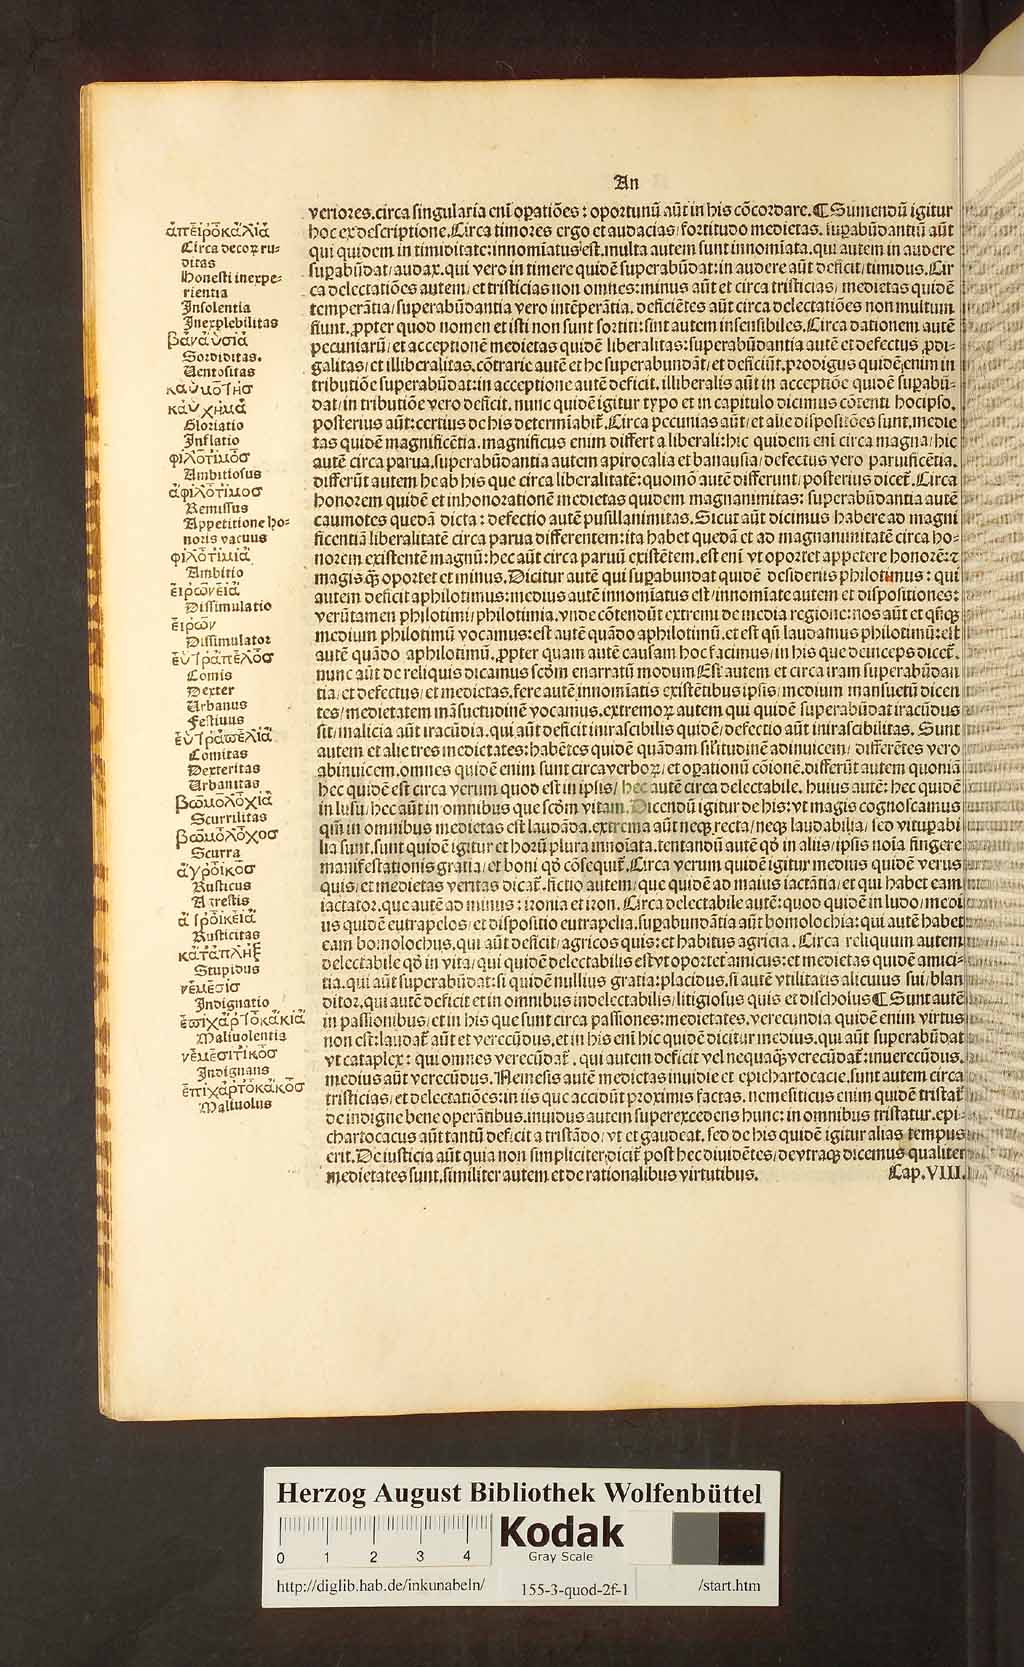 An
ἀπειροκαλιά
Circa decor ru-
ditas
Honesti inexpe-
rientia
Insolentia
Inexplebilitas
βαναυσιά
Sordiditas.
Uentositas
καυμοτης
καυχημα
Gloriatio
Inflatio
φιλοτιμος
Ambitiosus
ἀφιλοτιμος
Remissus
Appetitione ho-
noris vacuus
φιλοτιμια
Ambitio
εἰρωνεια
Dissimulatio
εἰρων
Dissimulator
εὐτραπελος
Comis
Dexter
Urbanus
Festiuus
εὐτραπελια
Comitas
Dexteritas
Urbanitas
βωμολοχια
Scurrilitas
βωμολοχος
Scurra
ἀγροικος
Rusticus
Agrestis
ἀγροικεια
Rusticitas
καταπληξ
Stupidus
νεμεσις
Indignatio
ἐπιχαρτοκακια
Maliuolentia
νεμεσιτικος
Indignans
ἐπιχαρτοκακος
Maliuolus
veriores.circa singularia em̄ oꝑatiōes : oportunū aūt in his cōcordare.¶ Sumendū igitur
hoc ex descriptione.Circa timores ergo et audacias/fortitudo medietas. suꝑabūdantiū aūt
qui quidem in timiditate:innomīatus est.multa autem sunt innomīata.qui autem in audere
suꝑabūdat/audax.qui vero in timere quidē superabūdat:in audere aūt deficit/timidus.Cir
ca delectatiōes autem/et tristicias non omnes:minus aūt et circa tristicias/ medietas quidē
temperātia/superabūdantia vero intēperātia. deficiētes aūt circa delectatiōes non multum
fiunt.ꝓpter quod nomen et isti non sunt sortiti:sint autem insensibiles.Circa dationem autē
pecuniarū/et acceptionē medietas quidē liberalitas:superabūdantia autē et defectus ꝓdi-
galitas/et illiberalitas.cōtrarie autē et he superabundāt/et deficiūt.prodigus quidē enim in
tributiōe superabūdat:in acceptione autē deficit. illiberalis aūt in acceptiōe quidē suꝑabū-
dat/in tributiōe vero deficit. nunc quidē igitur typo et in capitulo dicimus cōtenti hoc ipso.
posterius aūt:certius de his determīabit̄.Circa pecunias aūt/et alie dispositōes sunt.medie
tas quidē magnificētia.magnificus enim differt a liberali:hic quidem em̄ circa magna/hic
autē circa parua.superabūdantia autem apirocalia et banausia/defectus vero paruificētia.
differūt autem he ab his que circa liberalitatē:quomō autē differunt/posterius dicet̄.Circa
honorem quidē et inhonorationē medietas quidem magnanimitas: superabūdantia autē
caumotes quedā dicta : defectio autē pusillanimitas.Sicut aūt dicimus habere ad magni
ficentiā liberalitatē circa parua differentem:ita habet quedā et ad magnanimitatē circa ho-
norem existentē magnū:hec aūt circa paruū existētem.est em̄ vt oportet appetere honorē:⁊
magis q̄ꝫ oportet et minus.Dicitur autē qui suꝑabundat quidē desideriis philotimus : qui
autem deficit aphilotimus:medius autē innomīatus est/innomīate autem et dispositiones:
verūtamen philotimi/philotimia.vnde cōtendūt extremi de media regione:nos aūt et qn̄qꝫ
medium philotimū vocamus:est autē quādo aphilotimū.et est qn̄ laudamus philotimū:est
autē quādo aphilotimū.ꝓpter quam autē causam hoc facimus/in his que deinceps dicet̄.
nunc aūt de reliquis dicamus scd̄m enarratū modum Est autem et circa iram superabūdan
tia/et defectus/et medietas.fere autē innomīatis existētibus ipsis/medium mansuetū dicen
tes/medietatem māsuetudinē vocamus.extremoꝝ autem qui quidē superabūdat iracūdus
sit/malicia aūt iracūdia.qui aūt deficit inirascibilis quidē/defectio aūt inirascibilitas. Sunt
autem et alie tres medietates:habētes quidē quādam sil̄itudinē adinuicem/ differētes vero
abinuicem.omnes quidē enim sunt circa verboꝝ/et oꝑationū cōionē.differūt autem quoniā
hec quidē est circa verum quod est in ipsis/ hec autē circa delectabile. huius autē:hec quidē
in lusu/hec aūt in omnibus que scd̄m vitam.Dicendū igitur de his:vt magis cognoscamus
qm̄ in omnibus medietas est laudāda.extrema aūt neqꝫ recta/neqꝫ laudabilia/ sed vituꝑabi
lia sunt.sunt quidē igitur et horū plura innoīata.tentandū autē qd̄ in aliis/ipsis noīa fingere
manifestationis gratia/et boni qd̄ cōsequit̄.Circa verum quidē igitur medius quidē verus
quis/et medietas veritas dicat̄.fictio autem/que quidē ad maius iactātia/et qui habet eam
iactator.que autē ad minus : ironia et iron. Circa delectabile autē:quod quidē in ludo/medi
us quidē eutrapelos/et dispositio eutrapelia.suꝑabundātia aūt bomolochia:qui autē habet
eam bomolochus.qui aūt deficit/agricos quis:et habitus agricia . Circa reliquum autem
delectabile qd̄ in vita/qui quidē delectabilis est vt oportet amicus:et medietas quidē amici-
tia.qui aūt superabūdat:si quidē nullius gratia:placidus.si autē vtilitatis alicuius sui/blan
ditor.qui autē deficit et in omnibus indelectabilis/litigiosus quis et discholus¶ Sunt autē
in passionibus/et in his que sunt circa passiones:medietates.verecundia quidē enim virtus
non est:laudat̄ aūt et verecūdus.et in his em̄ hic quidē dicitur medius.qui aūt superabūdat
vt cataplex : qui omnes verecūdat̄ . qui autem deficit vel nequaq̄ꝫ verecūdat̄:inuerecūdus.
medius aūt verecūdus.Nemesis autē medietas inuidie et epichartocacie.sunt autem circa
tristicias/et delectatiōes:in iis que accidūt proximis factas.nemesiticus enim quidē tristat̄
de indigne bene operātibus.inuidus autem superexcedens hunc: in omnibus tristatur.epi-
chartocacus aūt tantū deficit a tristādo/vt et gaudeat. sed de his quidē igitur alias tempus
erit.De iusticia aūt quia non simpliciter dicit̄ post hec diuidētes/de vtraqꝫ dicemus qualiter
medietates sunt.similiter autem et de rationalibus virtutibus. Cap.VIII.
Herzog August Bibliothek Wolfenbüttel
0 1 2 3 4
Kodak
Gray Scale
http://diglib.hab.de/inkunabeln/ 155-3-quod-2f-1 /start.htm